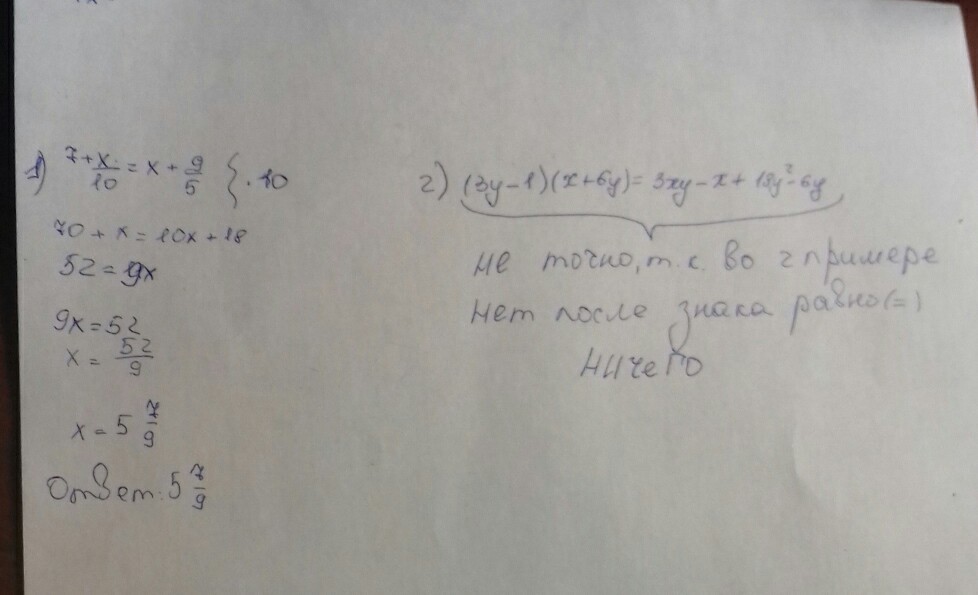 1) 7+x/10 = x + 9/5 } · 10
70 + x = 10x + 18
52 = 9x
9x = 52
x = 52/9
x = 5 7/9
Ответ: 5 7/9
2) (3y-1)(x+6y)= 3xy-x+18y²-6y
не точно, т.к. во 2 примере
нет после знака равно(=)
ничего